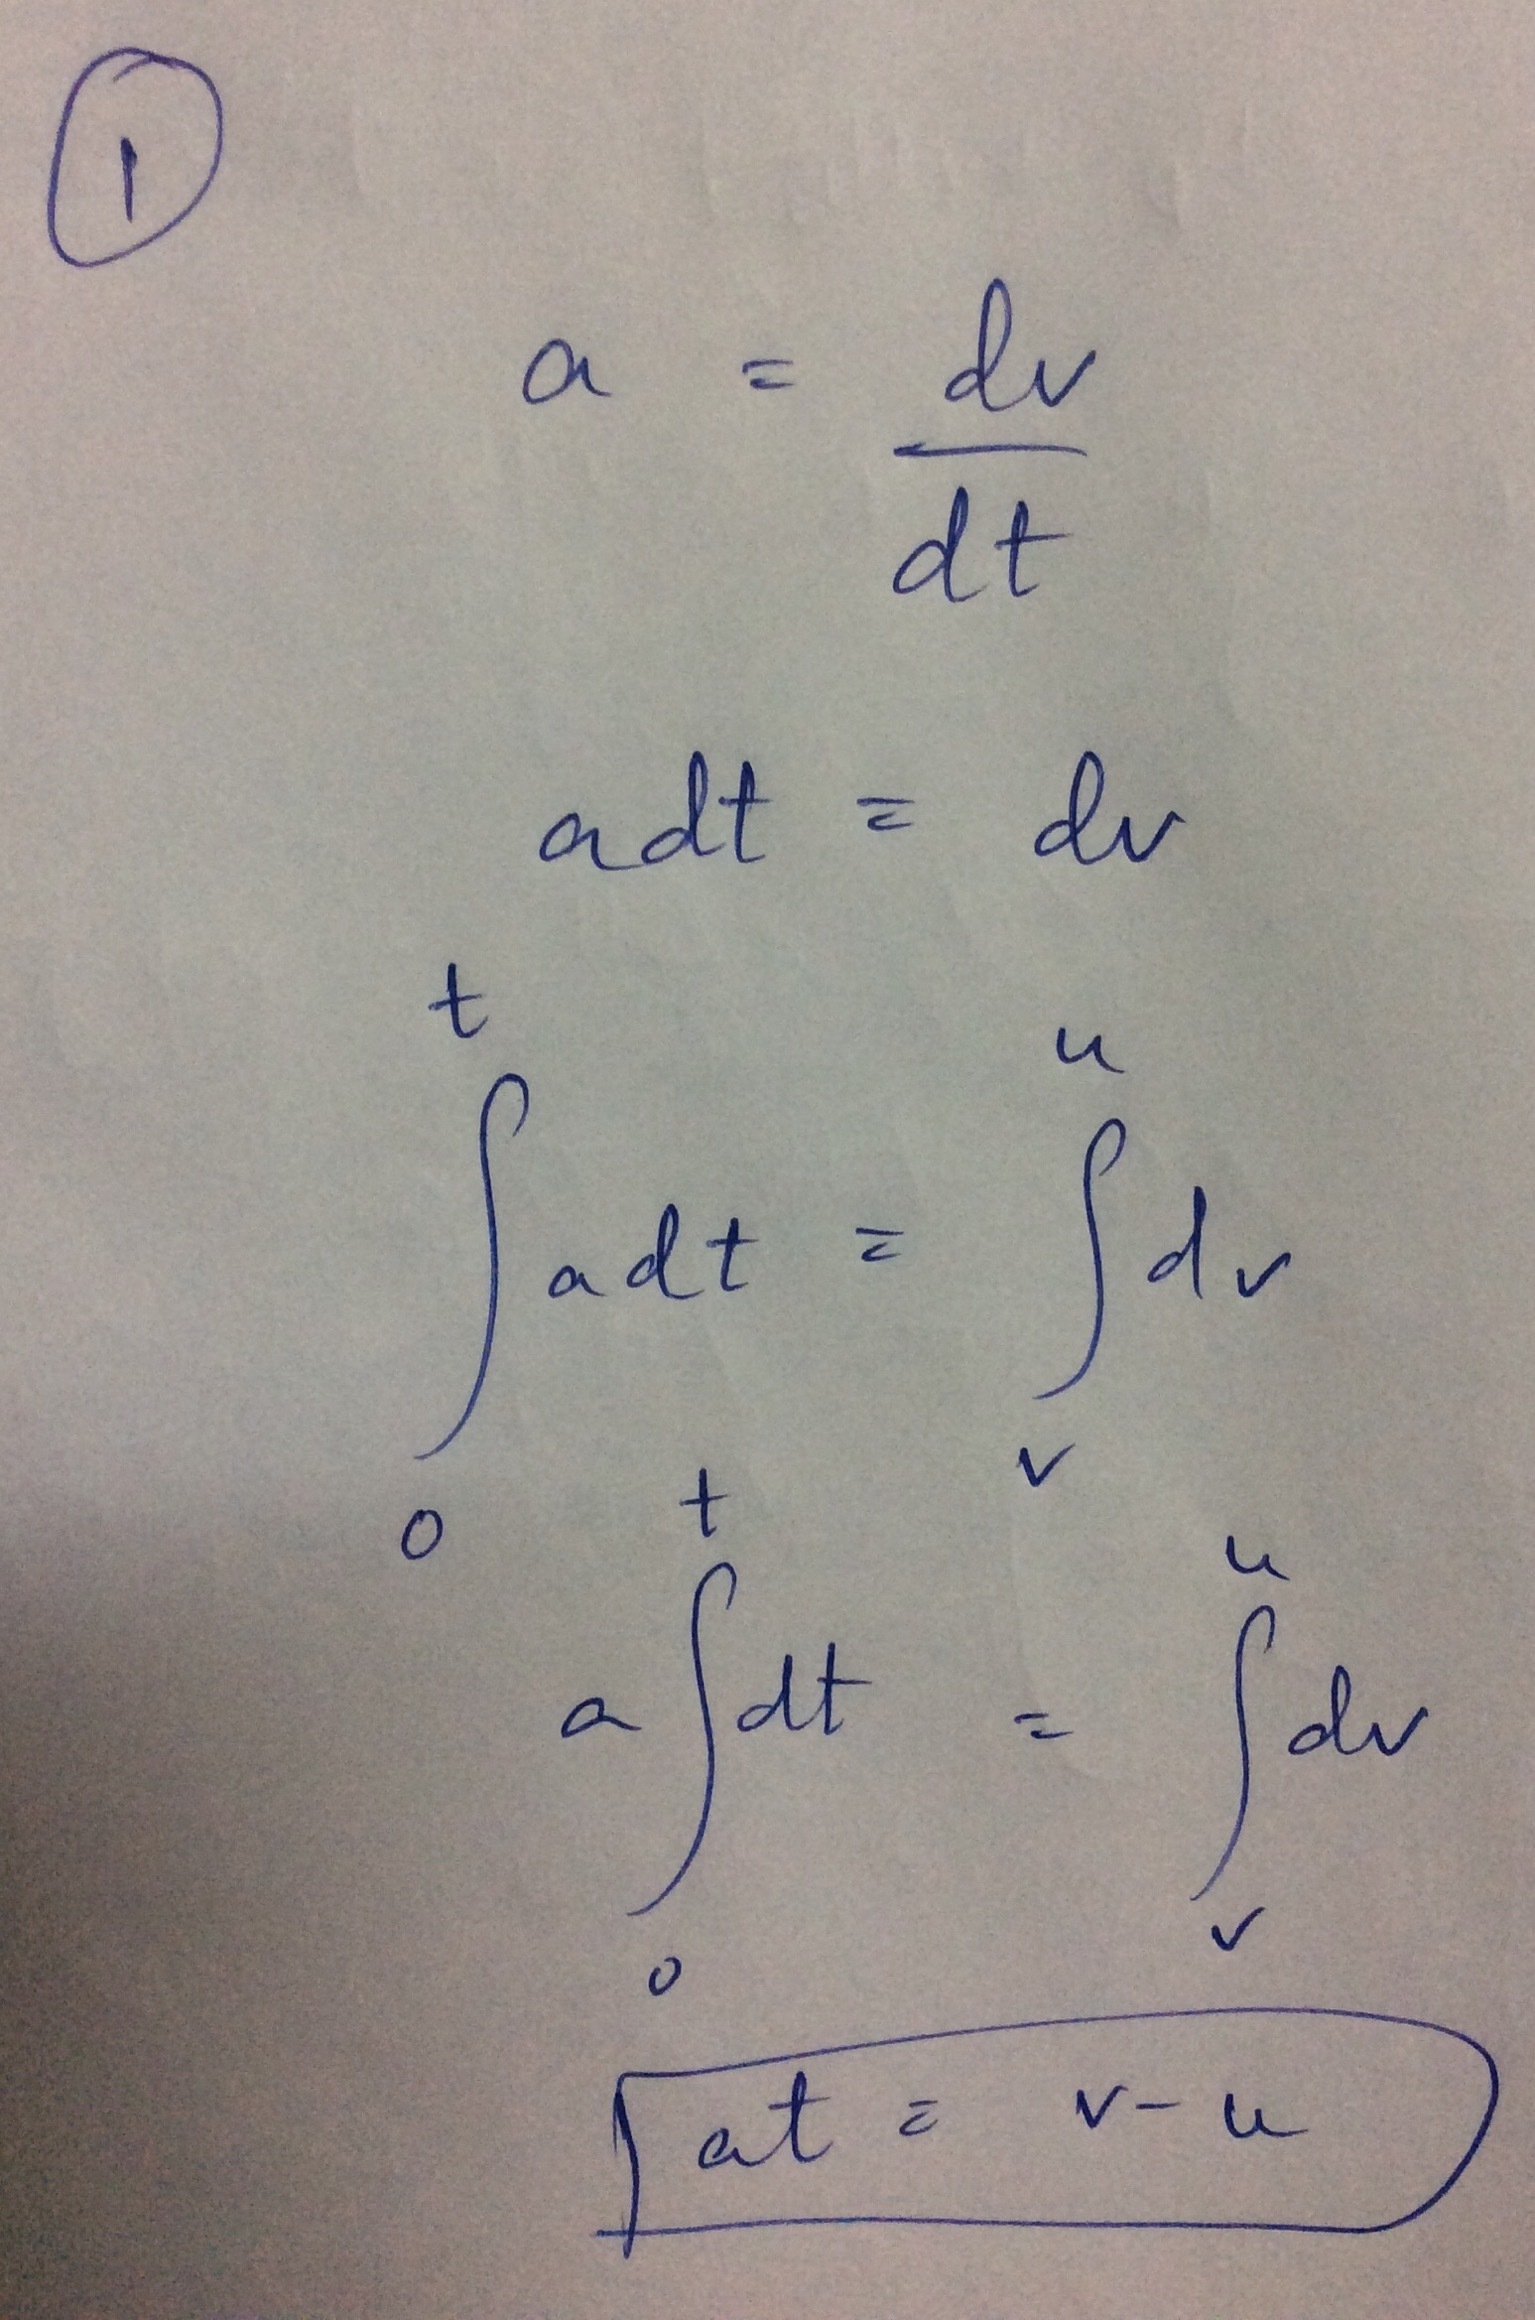 1
a = dv/dt
adt = dv
∫₀ᵗ adt = ∫ᵥᵘ dv
a ∫₀ᵗ dt = ∫ᵥᵘ dv
at = v - u